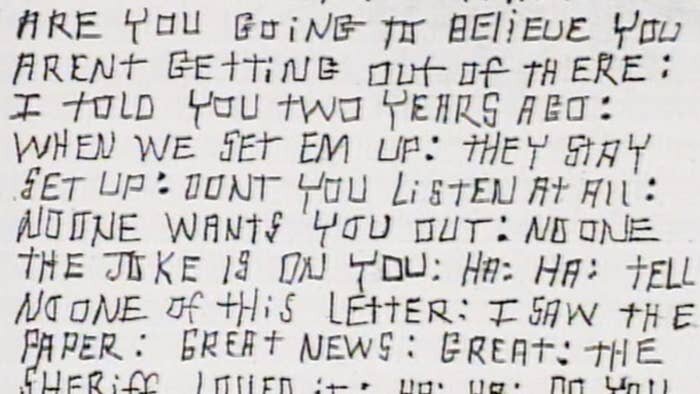 ARE YOU GOING TO BELIEVE YOU
ARENT GETTING OUT OF THERE:
I TOLD YOU TWO YEARS AGO:
WHEN WE SET EM UP: THEY STAY
SET UP: DONT YOU LISTEN At All:
NOONE WANTS YOU OUT: NOONE
THE JOKE IS ON YOU: HA: HA: TELL
NOONE OF THIS LETTER: I SAW THE
PAPER: GREAT NEWS: GREAT: THE
SHERIFF LOVED it: HA: HA: DO YOU